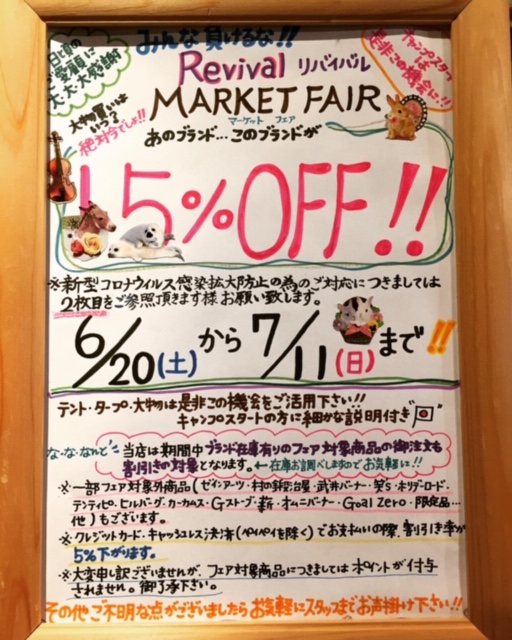 日頃の
ご愛顧に
大、大、大感謝
みんな負けるな!!
キャンプスタートは
是非この機会に!!
Revival リバイバル
MARKET FAIR
マーケット フェア
大物買いは
いつ?
絶対今でしょ!!
あのブランド…このブランドが
15%OFF!!
※新型コロナウィルス感染拡大防止の為のご対応につきましては
2枚目をご参照頂きます様お願い致します。
6/20(土)から7/11(日)まで!!
テント・タープ・大物は是非この機会をご活用下さい!!
キャンプスタートの方に細かな説明付き
な・な・なんと
当店は期間中ブランド在庫有りのフェア対象商品の御注文も
割引きの対象となります。←在庫お調べしますのでお気軽に!!
※一部フェア対象外商品(ゼインアーツ・村の鍛冶屋・武井バーナー・笑's・ホリデーロード・
テンティピ・ヒルバーグ・カーカムス・Gストーブ・薪・オムニバーナー・Goal Zero・限定品…
他)もございます。
※クレジットカード・キャッシュレス決済(ペイペイを除く)でお支払いの際、割引き率が
5%下がります。
※大変申し訳ございませんが、フェア対象商品につきましてはポイントが付与
されません。御了承下さい。
その他ご不明な点がございましたらお気軽にスタッフまでお声掛け下さい!!